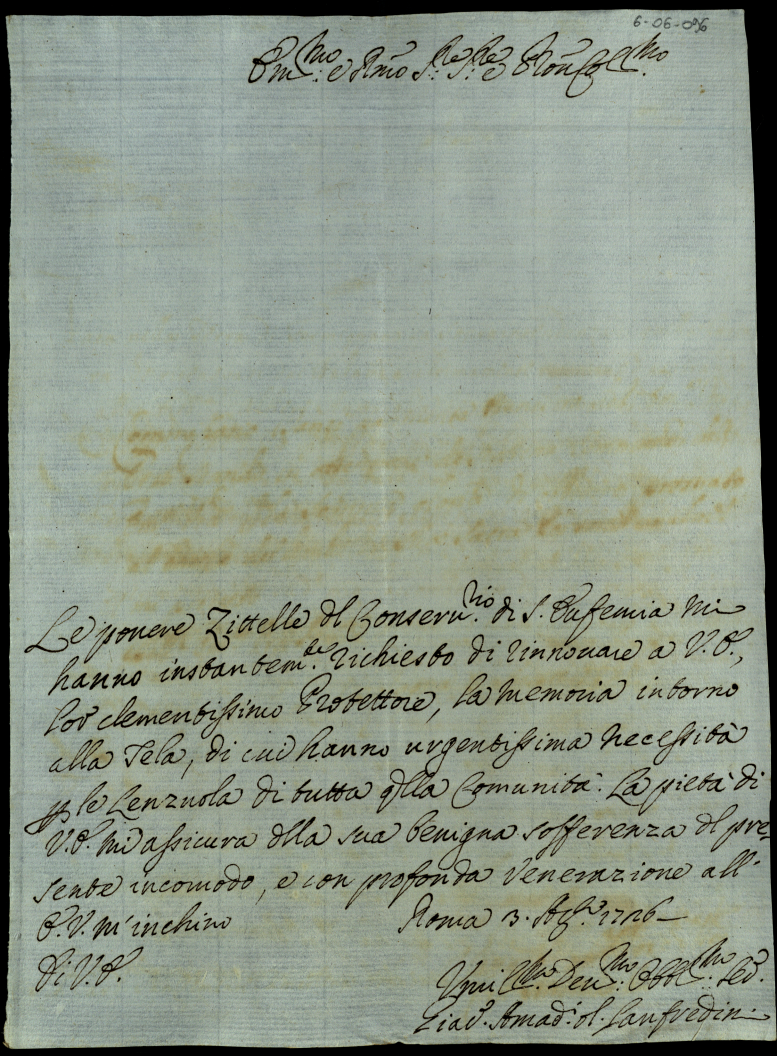 6-06-096
Em.mo e Rmo Sre Sre e Pron Col.mo
Le povere Zittelle dl Conseru.rio di S. Eufemia mi
hanno instantem.te richiesto di rinnouare a V.E.,
lor clementissimo Protettore, la memoria intorno
alla Tela, di cui hanno urgentissima necessità
p le Lenzuola di tutta qlla Comunità: La pietà di
V.E. m'assicura dlla sua benigna sofferenza dl pre,
sente incomodo, e con profonda venerazione all'
E.V. m'inchino Roma 3. 1726
Di V.E.
Vmil.mo Deu.mo Obbl.mo Seru.
Giac. Amad. ol. Lanfredini